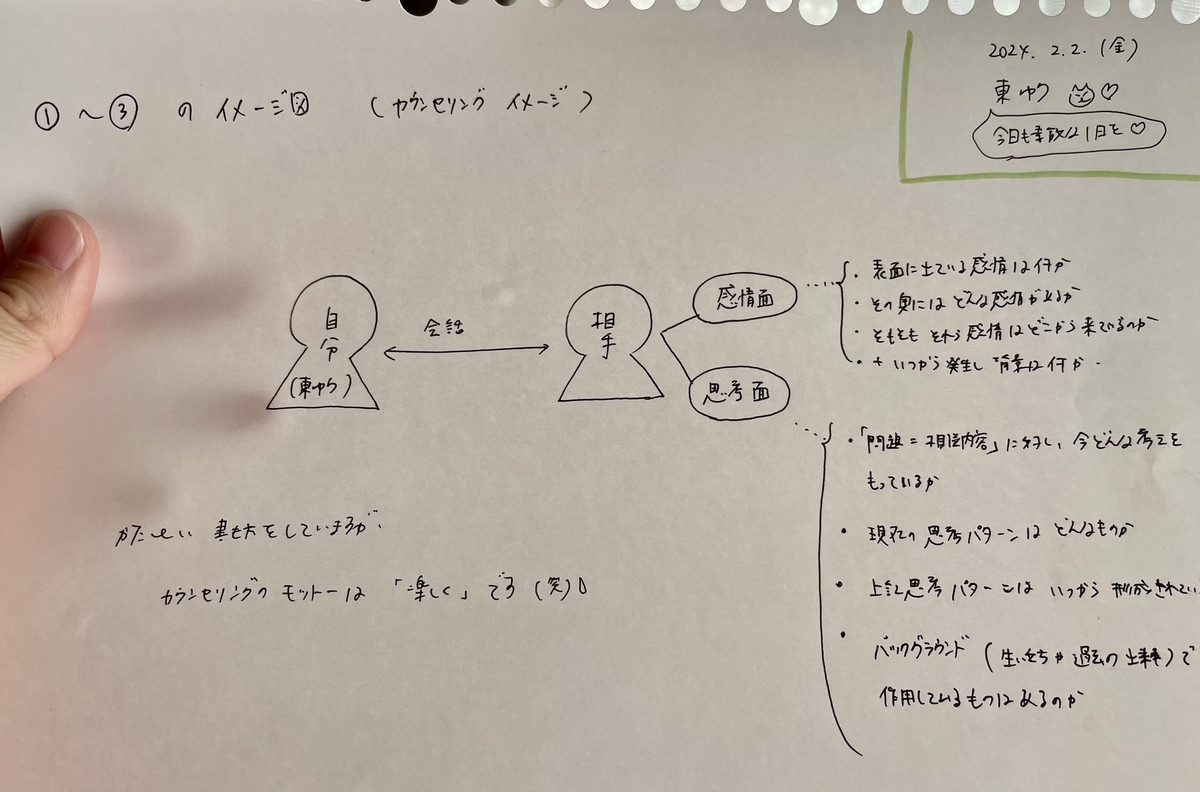 2024. 2. 2. (金)
東ゆり ♡
今日も素敵な1日を♡
①～③ の イメージ図 (カウンセリング イメージ)
自分
(東ゆり)
会話
相手
感情面
・表面に出ている感情は何か
・その奥にはどんな感情があるか
・そもそも それら感情はどこから来ているのか
・+ いつから発生し 背景は何か.
思考面
・「問題 = 相談内容」に対し、今どんな考えを
もっているか
・現在の思考パターンは どんなものか
・上記思考パターンは いつから 形成されてい
・バックグラウンド (生い立ちや過去の出来事) で
作用しているものはあるのか
かたーい 書き方をしていますが、
カウンセリングの モットーは 「楽しく」です (笑)